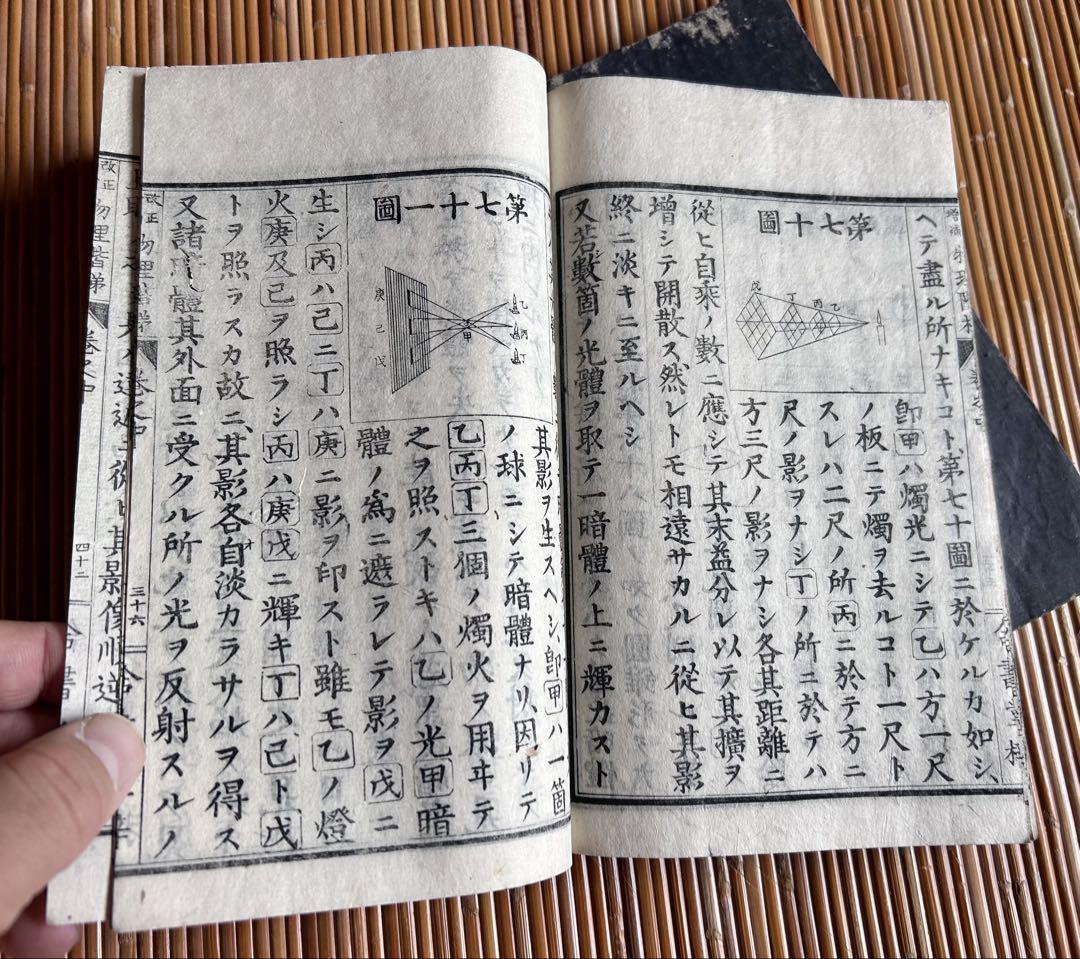 ヘテ盡ル所ナキコト、第七十圖ニ於ケルカ如シ、
第七十圖
戊
丁
丙
乙
卽甲ハ燭光ニシテ乙ハ方一尺
ノ板ニテ燭ヲ去ルコト一尺ト
スレハ二尺ノ所丙ニ於テ方二
尺ノ影ヲナシ丁ノ所ニ於テハ
方三尺ノ影ヲナシ各其距離ニ
從ヒ自乘ノ數ニ應シテ其末益分レ以テ其擴ヲ
增シテ開散ス、然レトモ相遠サカルニ從ヒ其影
終ニ淡キニ至ルヘシ
又若數箇ノ光體ヲ取テ一暗體ノ上ニ輝カスト
第七十一圖
庚
己
戊
甲
乙
丙
丁
其影ヲ生スヘシ、卽甲ハ一箇
ノ球ニシテ暗體ナリ、因リテ
乙丙丁三個ノ燭火ヲ用ヰテ
之ヲ照ストキハ乙ノ光甲暗
體ノ爲ニ遮ラレテ影ヲ戊ニ
生シ丙ハ己ニ丁ハ庚ニ影ヲ印スト雖モ乙ノ燈
火庚及己ヲ照ラシ丙ハ庚戊ニ輝キ丁ハ己ト戊
トヲ照ラスカ故ニ、其影各自淡カラサルヲ得ス
又諸體其外面ニ受クル所ノ光ヲ反射スルノ
改正
物理階梯
卷之中
三十六
從ヒ其景像順逆
改正
物理階梯
卷之中
四十二